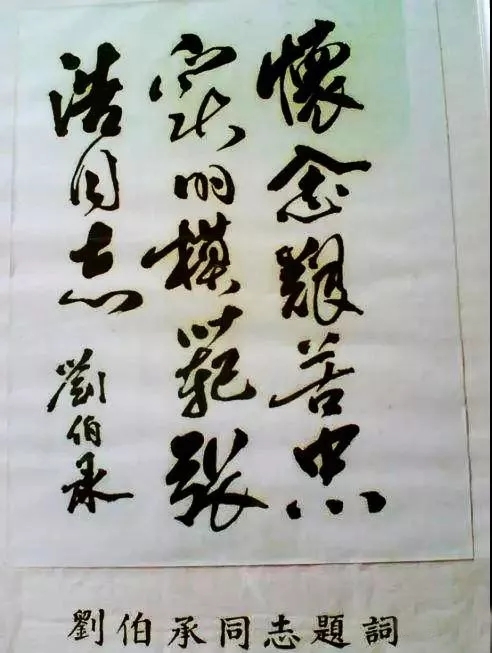 懷念艱苦忠
实的模範张
浩同志
劉伯承
劉伯承同志題詞